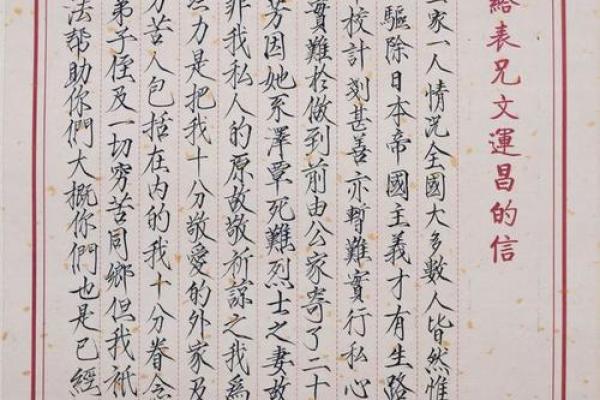 給表兄文運昌的信
家一人情況全國大多數人皆然惟
驅除日本帝國主義才有生路
校計劃甚善亦暫難實行私心
實難於做到前由公家寄了二十
芳因她系澤覃死難烈士之妻故
非我私人的原故敬祈諒之我為
力是把我十分敬愛的外家及
苦人包括在内的我十分眷念
弟子侄及一切窮苦同鄉但我衹
法幫助你們大概你們也是已經